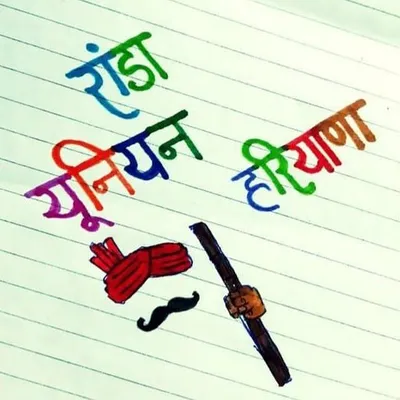 रांडा
यूनियन
हरियाणा